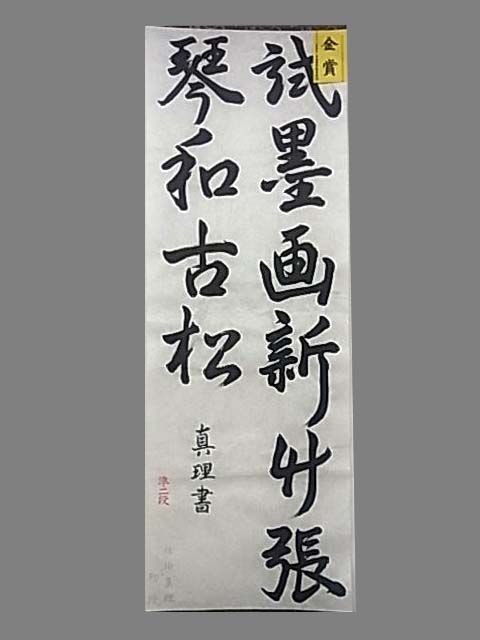 金賞
試墨画新竹張
琴和古松
真理書
準二段